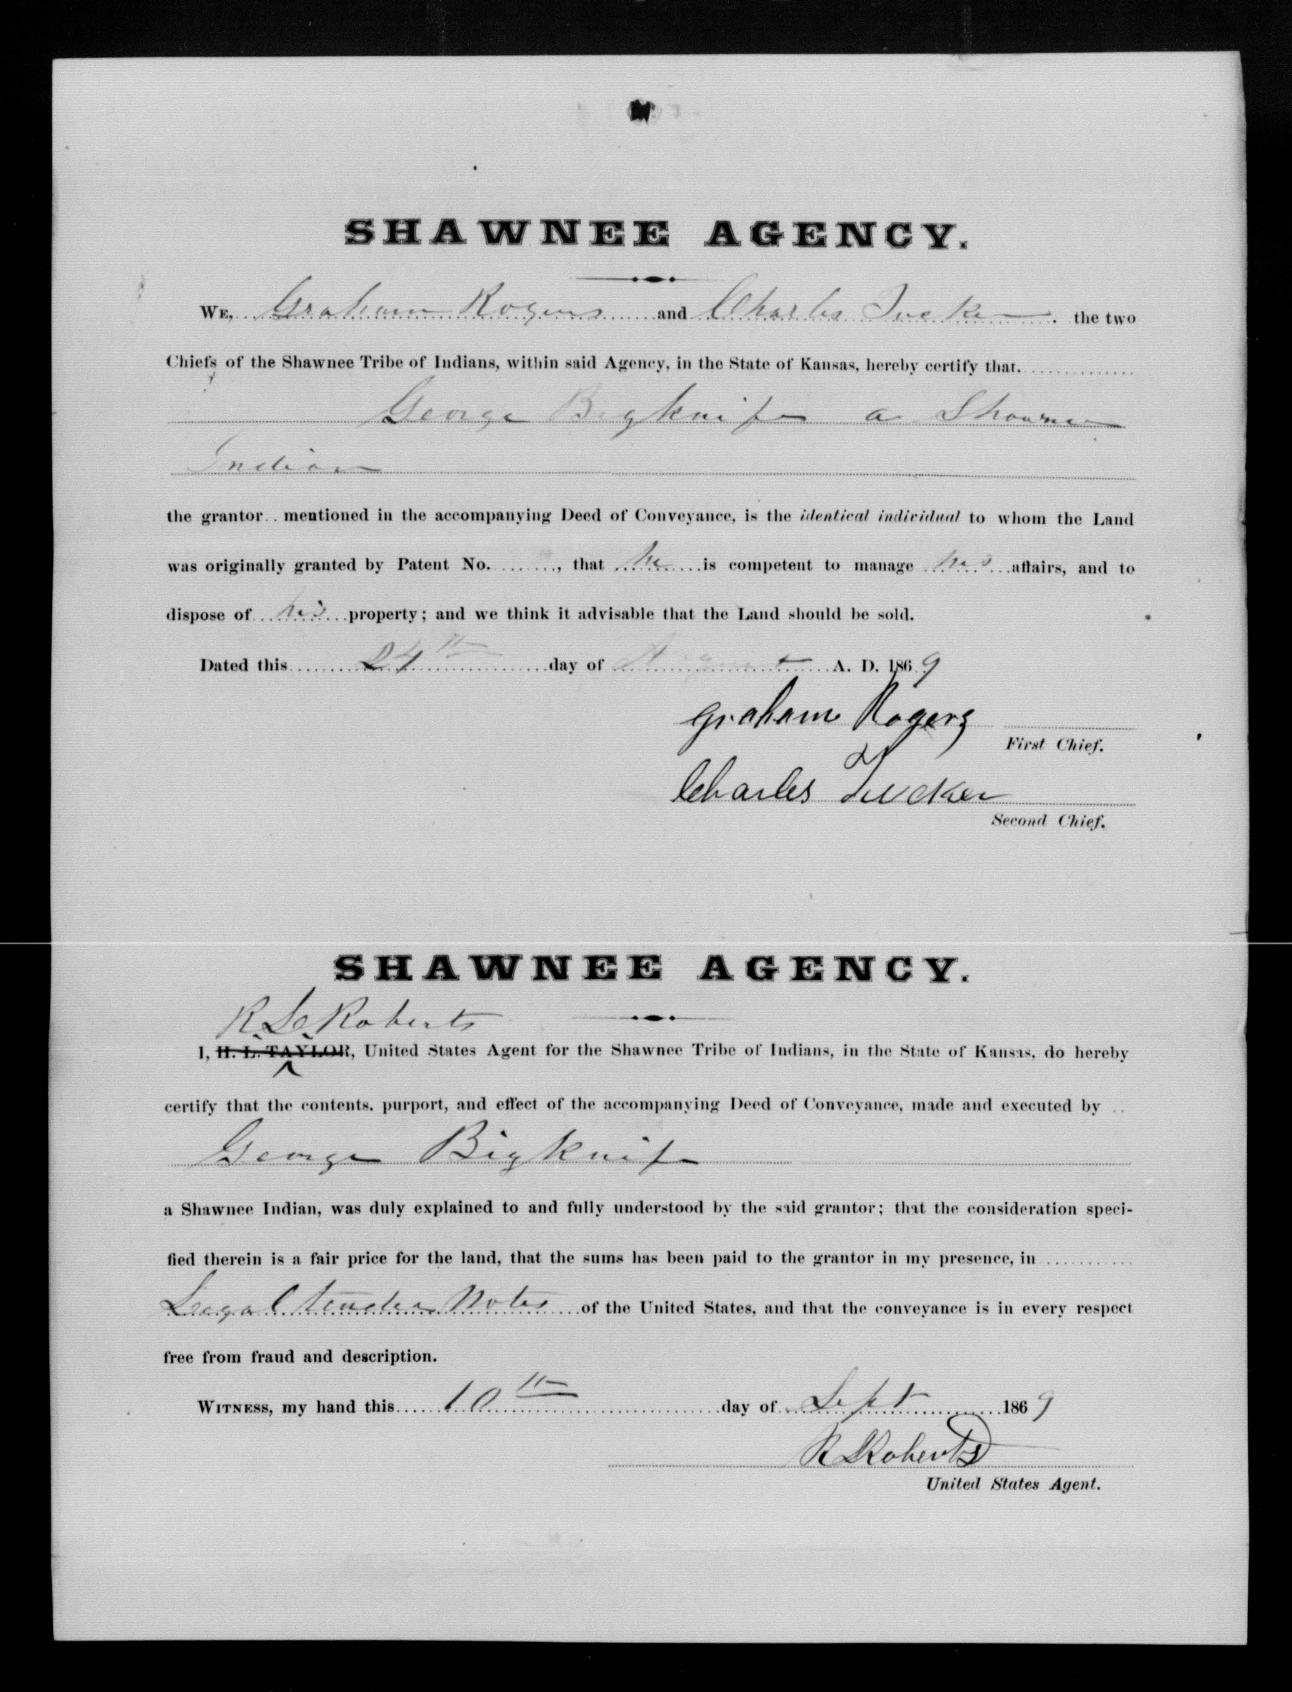 SHAWNEE AGENCY.
WE, Graham Rogers and Charles Tucker. the two
Chiefs of the Shawnee Tribe of Indians, within said Agency, in the State of Kansas, hereby certify that
George Bigknife a Shawnee
Indian
the grantor mentioned in the accompanying Deed of Conveyance, is the identical individual to whom the Land
was originally granted by Patent No. , that he is competent to manage his affairs, and to
dispose of his property; and we think it advisable that the Land should be sold.
Dated this 24th day of August A. D. 1869
Graham Rogers
First Chief.
Charles Tucker
Second Chief.
SHAWNEE AGENCY.
R. L. Roberts
I, H. L. TAYLOR, United States Agent for the Shawnee Tribe of Indians, in the State of Kansas, do hereby
certify that the contents. purport, and effect of the accompanying Deed of Conveyance, made and executed by
George Bigknife
a Shawnee Indian, was duly explained to and fully understood by the said grantor; that the consideration speci-
fied therein is a fair price for the land, that the sums has been paid to the grantor in my presence, in
Legal tender Notes of the United States, and that the conveyance is in every respect
free from fraud and description.
WITNESS, my hand this 10th day of Sept 1869
R L Roberts
United States Agent.